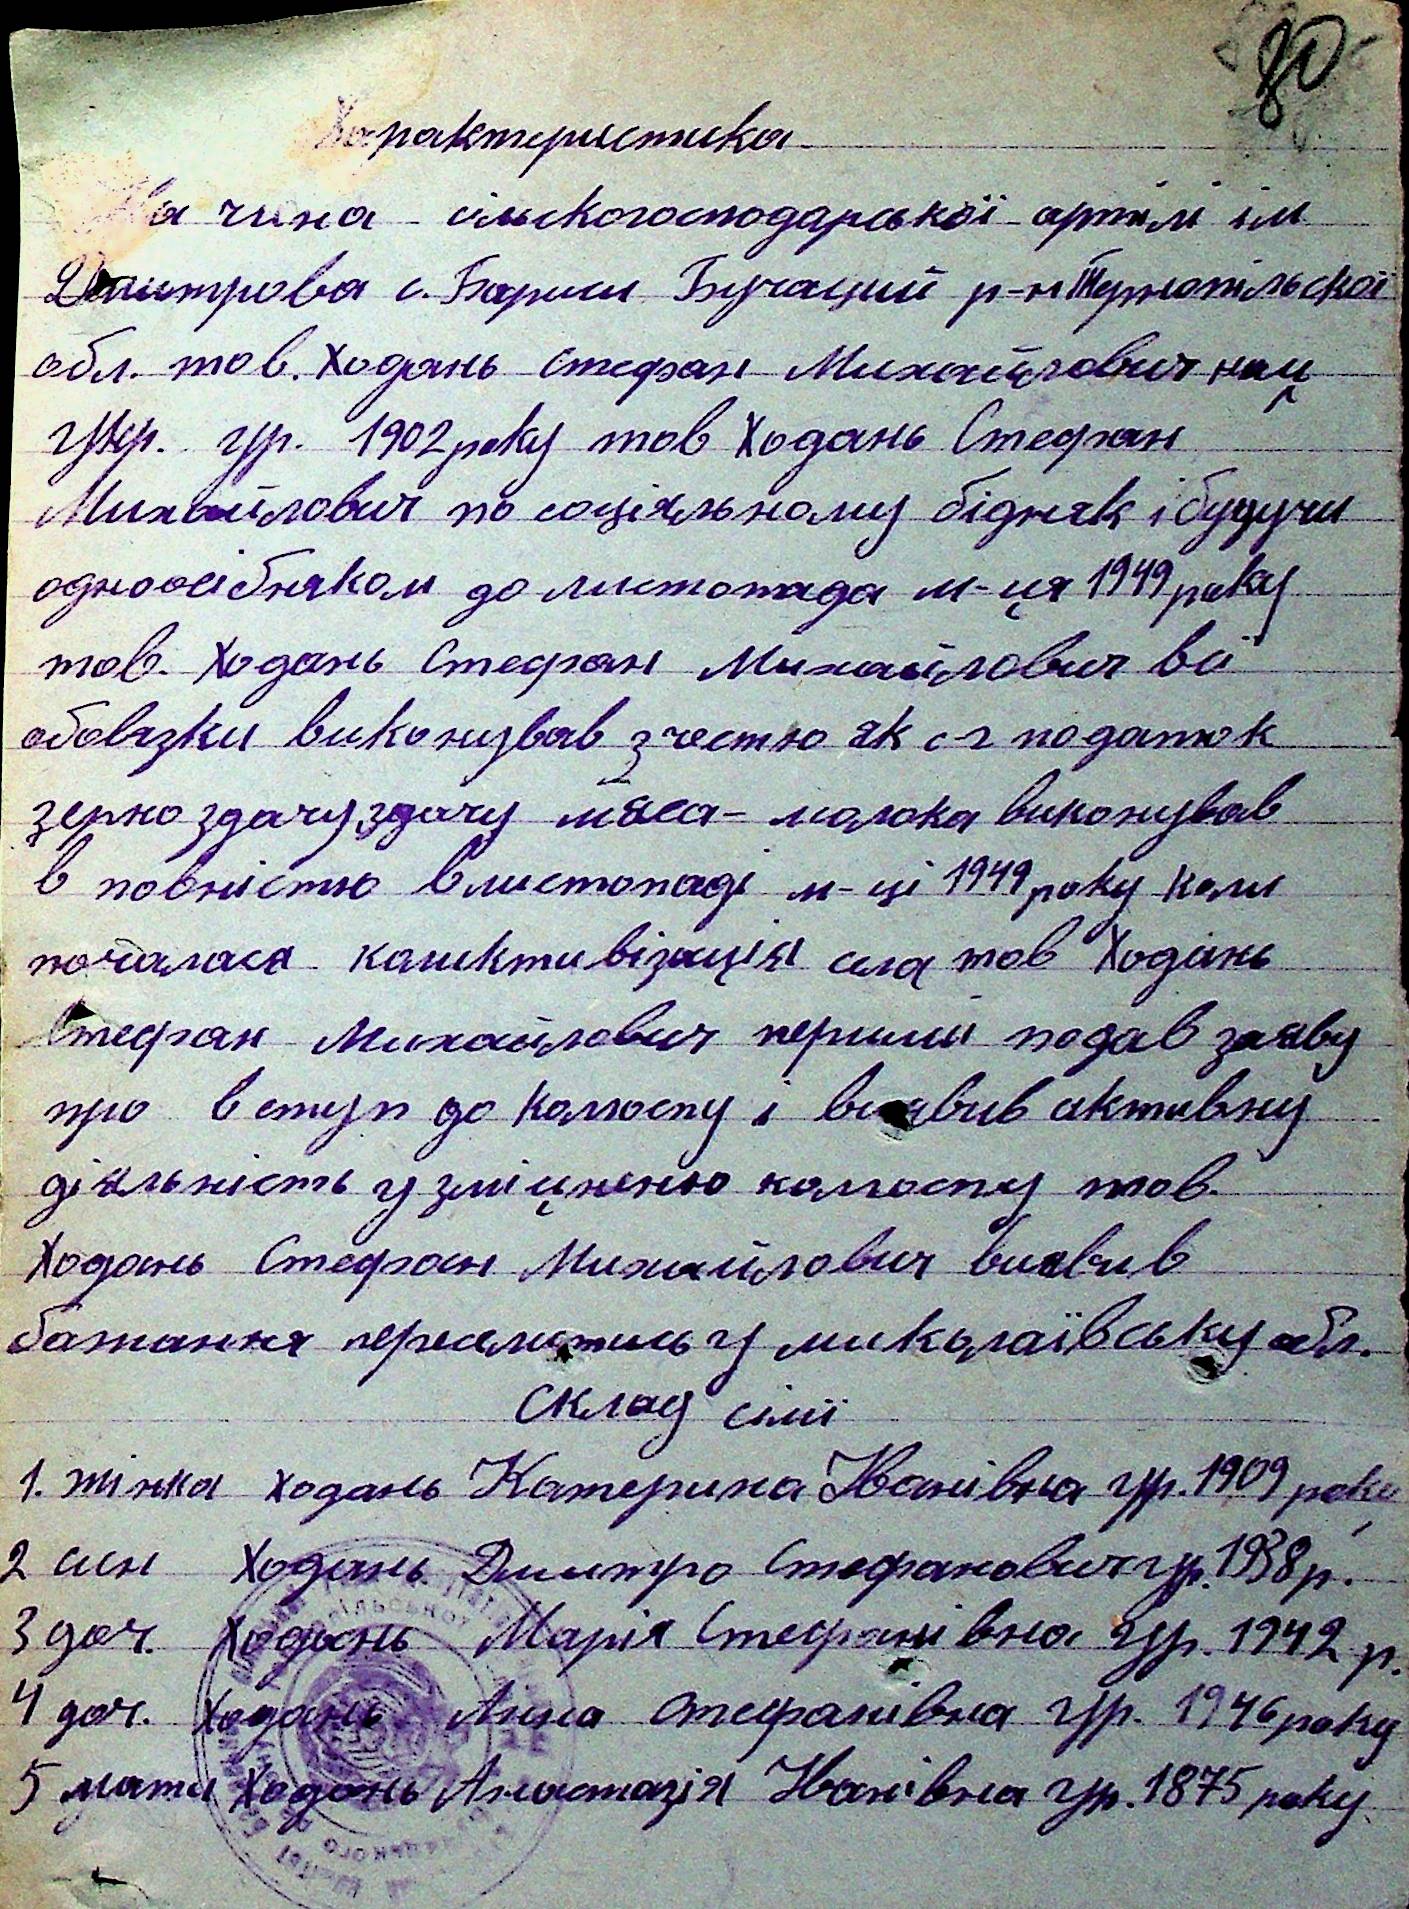 80
Характеристика
На чина сільскогосподарської артілі ім
Димтрова с. Бариш Бучацкий р-н Тернопільскої
обл. тов. Ходань Стефан Михайлович нац
укр. гр. 1902 року тов Ходань Стефан
Михайлович по соціяльному бідняк і будучи
одноосібняком до листопада м-ця 1949 року
тов. Ходань Стефан Михайлович всі
обовязки виконував з честю як с-г податок
зерно здачу, здачу мяса - молока виконував
в повністю в листопаді м-ці 1949 року коли
почалася колективізація села тов Ходань
Стефан Михайлович перший подав заяву
про вступ до колгоспу і виявив активну
діяльність у зміцненю колгоспу тов.
Ходань Стефан Михайлович виявив
бажання переселитись у миколаївську обл.
Склад сімї
1. жінка Ходань Катерина Іванівна гр. 1909 року
2 син Ходань Дмитро Стефанович гр. 1938 р.
3 доч. Ходань Марія Стефанівна гр. 1942 р.
4 доч. Ходань Анна Стефанівна гр. 1946 року
5 мати Ходань Анастазія Іванівна гр. 1875 року